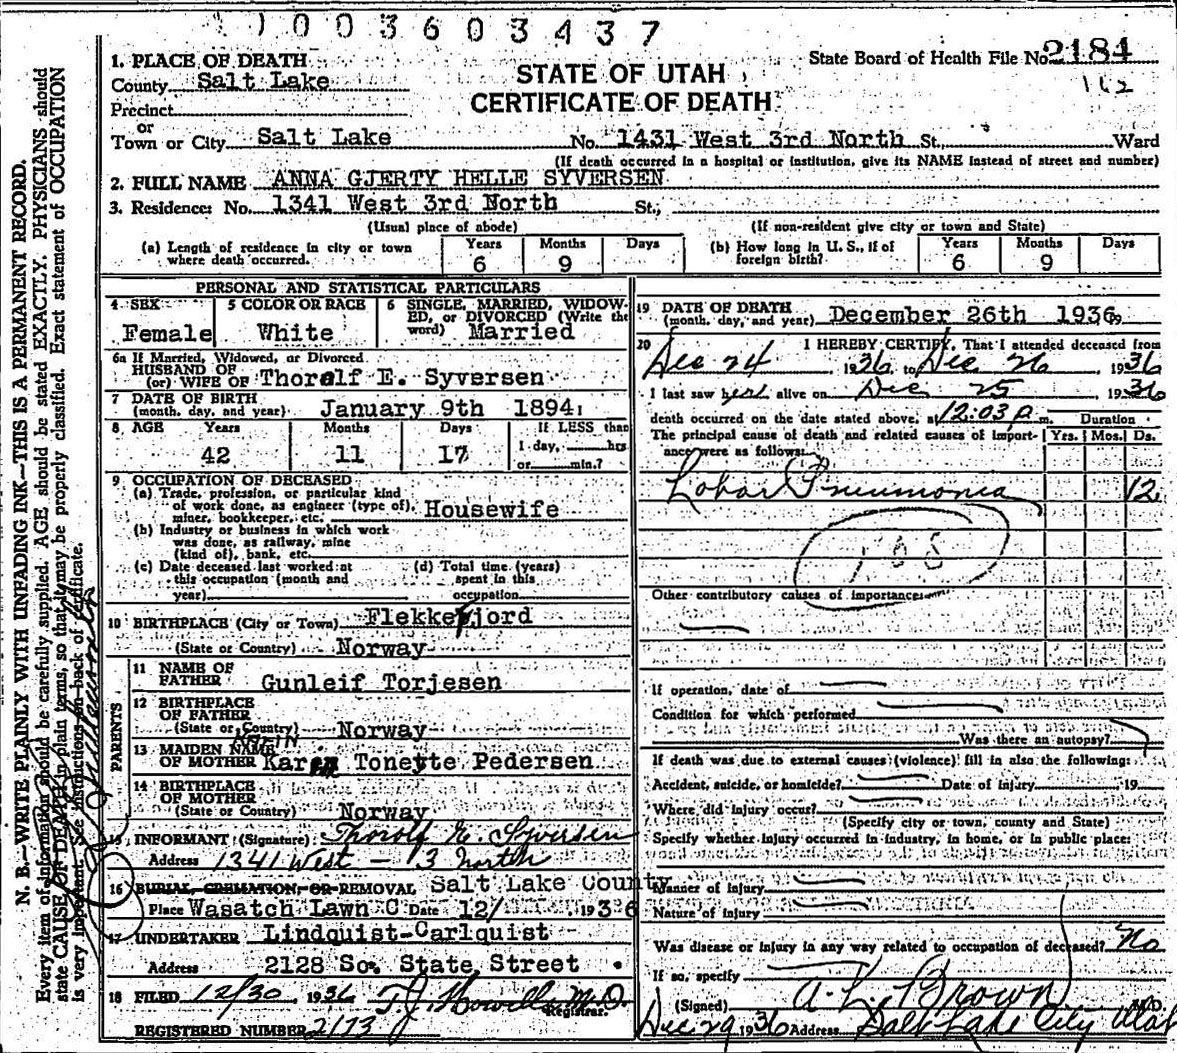 1003603437
State Board of Health File No. 2184
162
STATE OF UTAH
CERTIFICATE OF DEATH
1. PLACE OF DEATH
County Salt Lake
Precinct
or
Town or City Salt Lake No. 1431 West 3rd North St., Ward
(If death occurred in a hospital or institution, give its NAME instead of street and number)
2. FULL NAME ANNA GJERTY HELLE SYVERSEN
3. Residence: No. 1341 West 3rd North St.,
(Usual place of abode) (If non-resident give city or town and State)
(a) Length of residence in city or town where death occurred. Years 6 Months 9 Days
(b) How long in U. S., if of foreign birth? Years 6 Months 9 Days
PERSONAL AND STATISTICAL PARTICULARS
4 SEX Female
5 COLOR OR RACE White
6 SINGLE, MARRIED, WIDOWED, or DIVORCED (Write the word) Married
6a If Married, Widowed, or Divorced
HUSBAND OF
(or) WIFE OF Thoralf E. Syversen
7 DATE OF BIRTH
(month, day, and year) January 9th 1894
8 AGE Years 42 Months 11 Days 17 If LESS than 1 day, hrs or min.?
9 OCCUPATION OF DECEASED
(a) Trade, profession, or particular kind
of work done, as engineer (type of), Housewife
miner, bookkeeper, etc.
(b) Industry or business in which work
was done, as railway, mine
(kind of), bank, etc.
(c) Date deceased last worked at this occupation (month and year)
(d) Total time (years) spent in this occupation
10 BIRTHPLACE (City or Town) Flekkefjord
(State or Country) Norway
PARENTS
11 NAME OF
FATHER Gunleif Torjesen
12 BIRTHPLACE
OF FATHER
(State or Country) Norway
13 MAIDEN NAME
OF MOTHER Karen Tonette Pedersen
14 BIRTHPLACE
OF MOTHER
(State or Country) Norway
15 INFORMANT (Signature) Thoralf E. Syversen
Address 1341 West - 3 North
16 BURIAL, CREMATION, OR REMOVAL Salt Lake County
Place Wasatch Lawn C Date 12/ 1936
17 UNDERTAKER Lindquist-Carlquist
Address 2128 So. State Street
18 FILED 12/30, 1936 T.J. Howells M.D.
Registrar.
REGISTERED NUMBER 2173
19 DATE OF DEATH
(month, day, and year) December 26th 1936
20 I HEREBY CERTIFY, That I attended deceased from
Dec 24 1936, to Dec 26 1936
I last saw her alive on Dec 25 1936
death occurred on the date stated above, at 12:03 p m. Duration
The principal cause of death and related causes of importance were as follows: Yrs. Mos. Ds.
Lobar Pneumonia 12
108
Other contributory causes of importance:
If operation, date of
Condition for which performed
Was there an autopsy?
If death was due to external causes (violence) fill in also the following:
Accident, suicide, or homicide? Date of injury 19
Where did injury occur?
(Specify city or town, county and State)
Specify whether injury occurred in industry, in home, or in public place:
Manner of injury
Nature of injury
Was disease or injury in any way related to occupation of deceased? No
If so, specify
(Signed) A. L. Brown M.D.
Dec 29 1936 Address Salt Lake City Utah
N. B.—WRITE PLAINLY WITH UNFADING INK—THIS IS A PERMANENT RECORD.
Every item of information should be carefully supplied. AGE should be stated EXACTLY. PHYSICIANS should
state CAUSE OF DEATH in plain terms, so that it may be properly classified. Exact statement of OCCUPATION
is very important. See instructions on back of certificate.